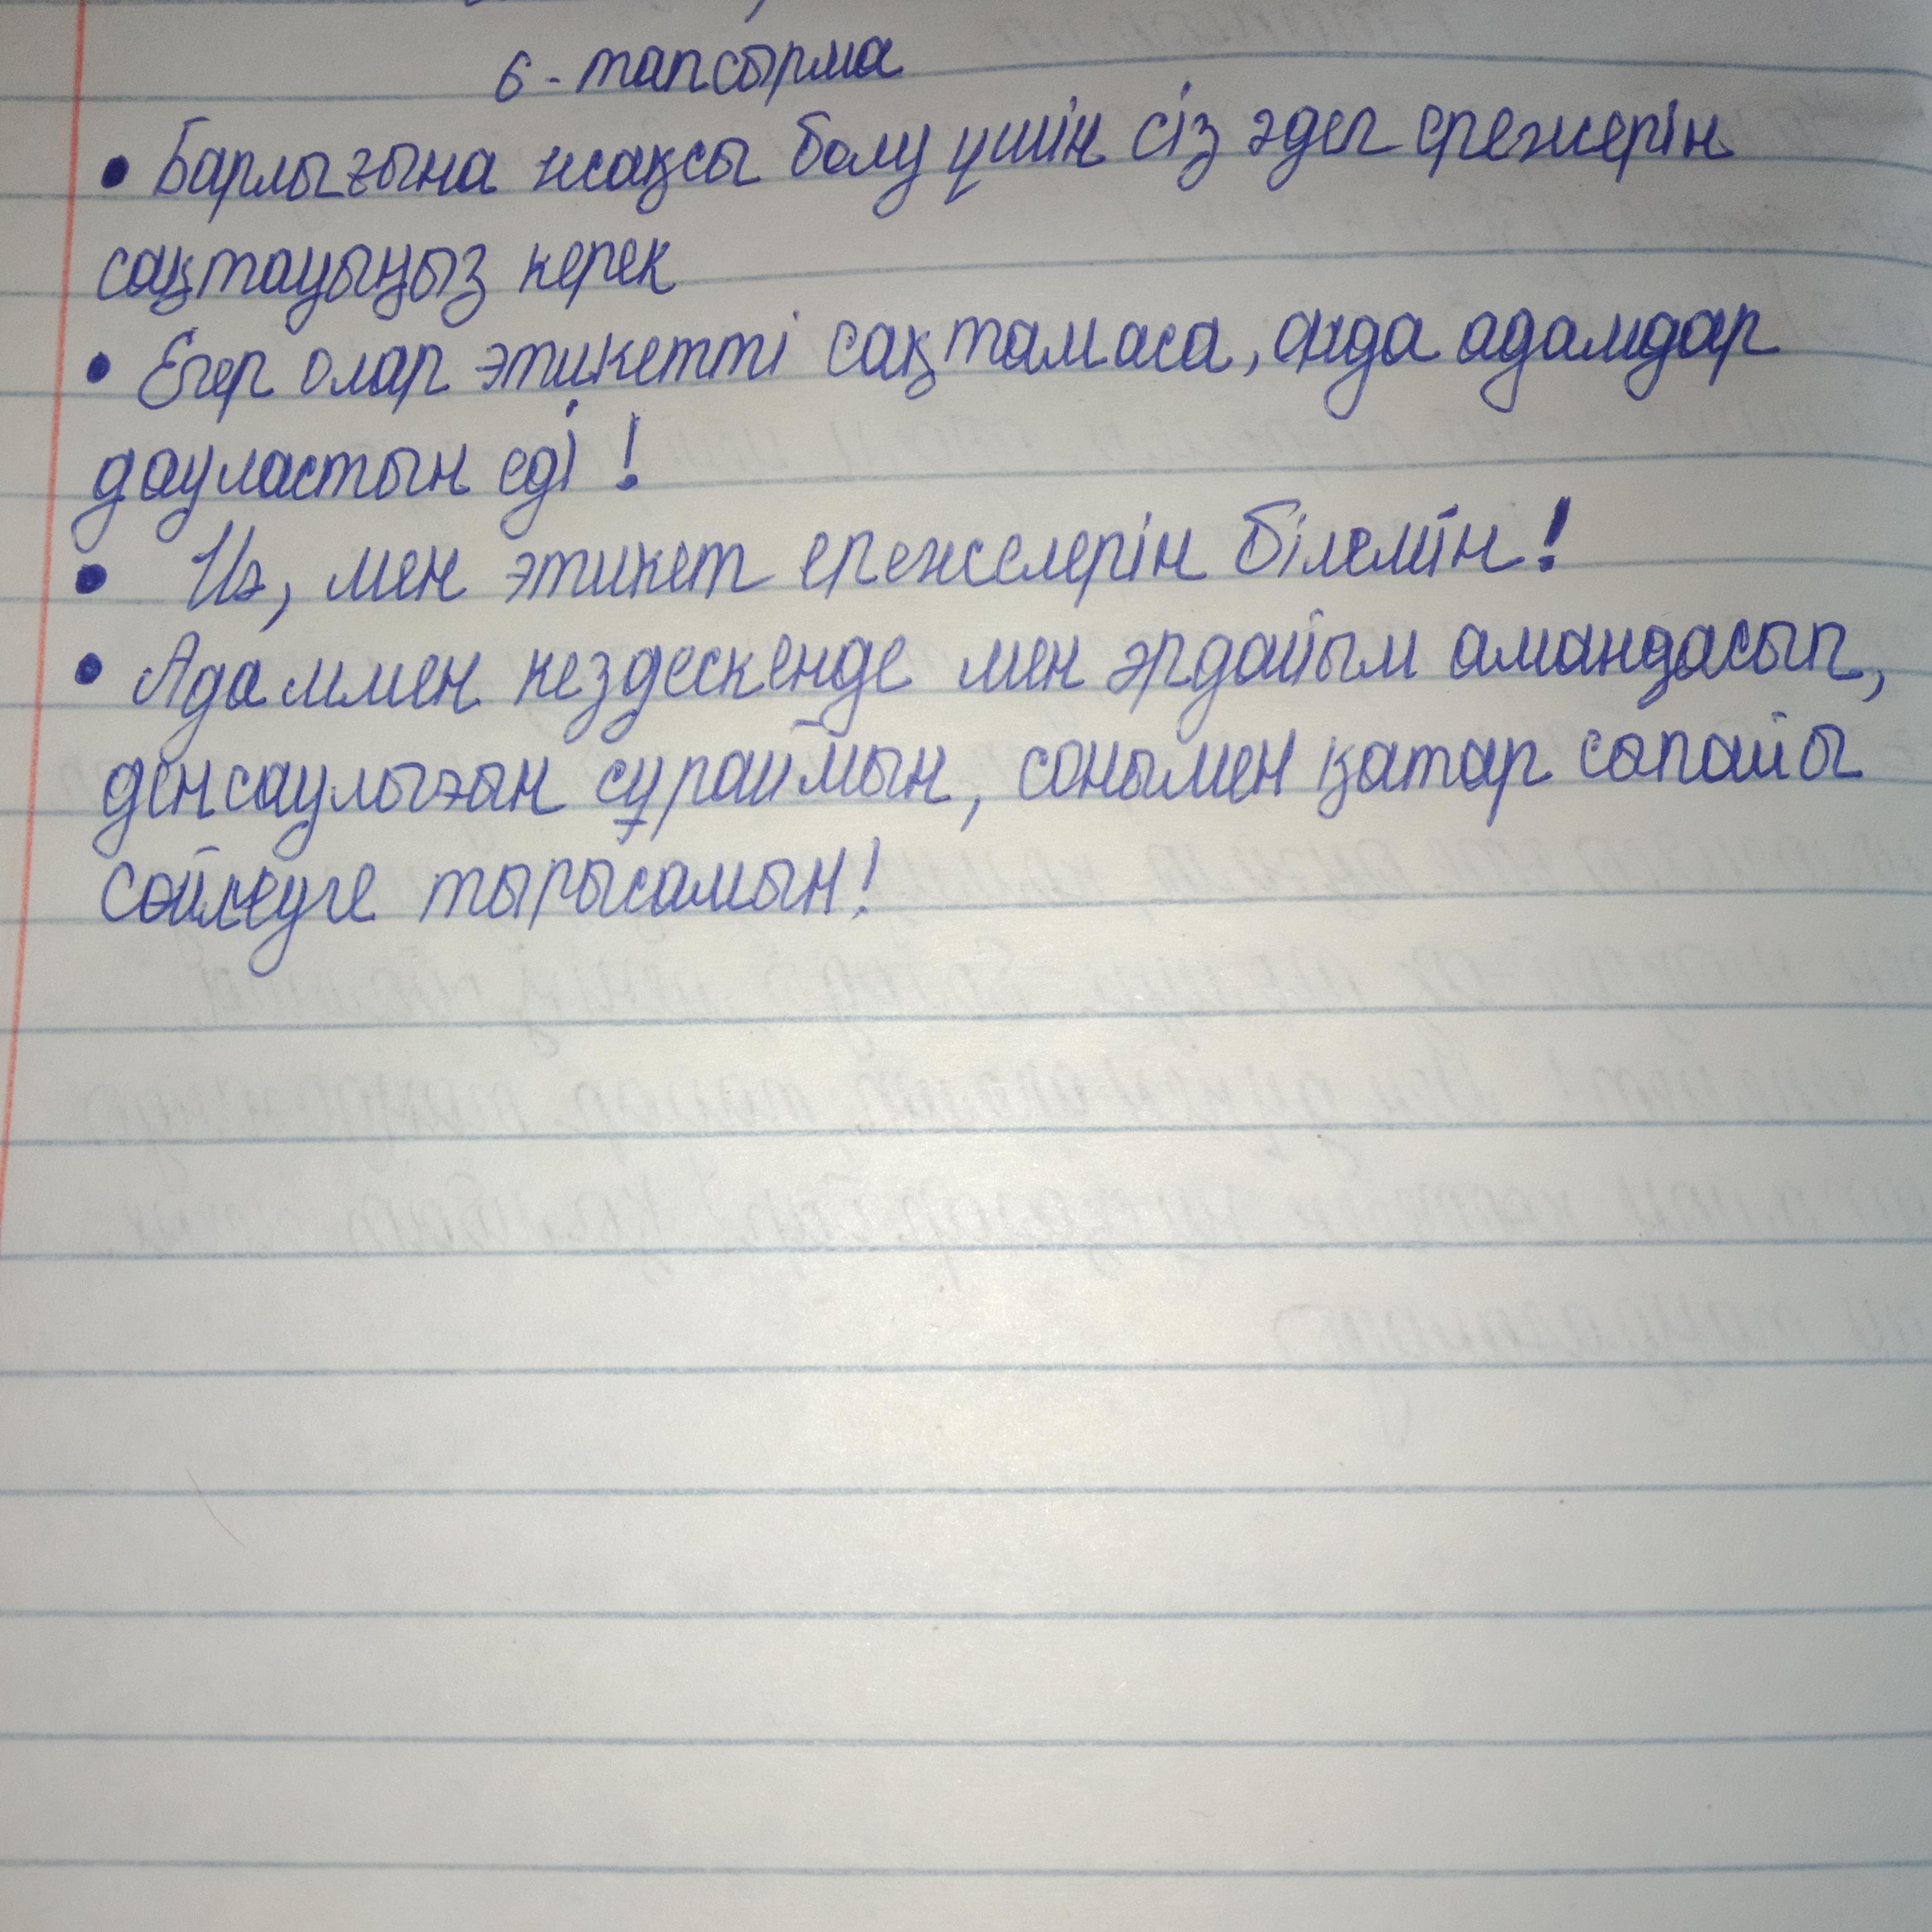 6 - тапсырма
• Барлығына жақсы болу үшін сіз әдеп ережерін
сақтауыңыз керек
• Егер олар этикетті сақтамаса, онда адамдар
дауластын еді !
• Иә, мен этикет ережелерін білемін!
• Адаммен кездескенде мен әрдайым амандасып,
денсаулығын сұраймын, сонымен қатар сыпайы
сөйлеуге тырысамын!